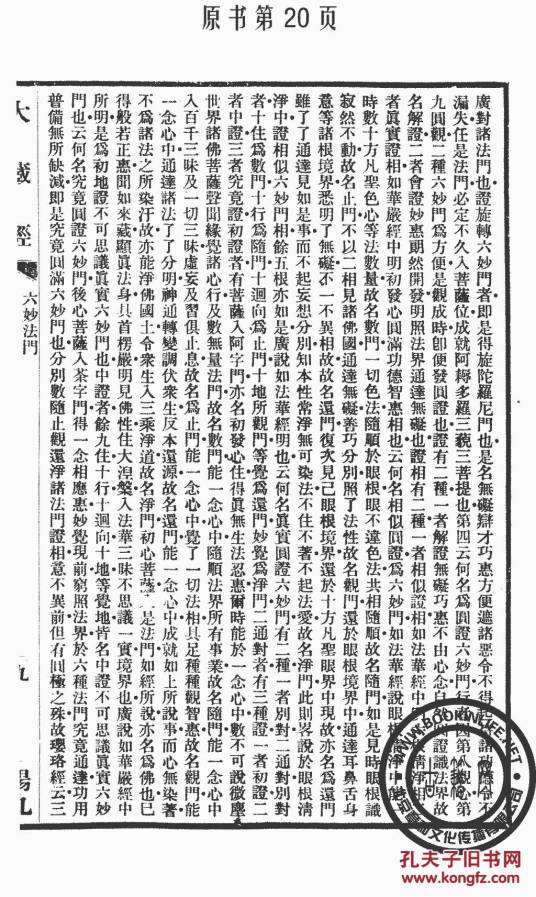 原书第20页
廣對諸法門也證旋轉六妙門者即是得旋陀羅尼門也是名無礙辯才巧惠方便遮諸惡令不得起諸功德令不
漏失任是法門必定不久入菩薩位成就阿耨多羅三藐三菩提也第四云何名爲圓證六妙門行者因第八觀心第
九圓觀二種六妙門爲方便是觀成時即便發圓證也證有二種一者解證無礙巧惠不由心念自圓證識法界故
名解證二者會證妙惠朗然開發明照法界通達無礙也證相有二種一者相似證相如法華經中清淨相
者眞實證相如華嚴經中明初發心圓滿功德智惠相也云何名相似圓證爲六妙門如法華經說眼根清淨中
時數十方凡聖色心等法數量故名數門一切色法隨順於眼根眼不違色法共相隨順故名隨門如是見時眼根識
寂然不動故名止門不以二相見諸佛國通達無礙善巧分別照了法性故名觀門還於眼根境界中通達耳鼻舌身
意等諸根境界悉明了無礙不一不異相故故名還門復次見己眼根境界還於十方凡聖眼界中現故亦名爲還門
雖了了通達見如是事而不起妄想分別知本性常淨無可染法不住不著不起法愛故名淨門此則畧說於眼根清
淨中證相似六妙門相餘五根亦如是廣說如法華經明也云何名眞實圓證六妙門有二種一者別對二通對別對
者十住爲數門十行爲隨門十迴向爲止門十地所觀門等覺爲還門妙覺爲淨門二通對者有三種證一者初證二
者中證三者究竟證初證者有菩薩入阿字門亦名初發心住得眞無生法忍惠爾時能於一念心中數不可說微塵
世界諸佛菩薩聲聞緣覺諸心行及數無量法門故名數門能一念心中隨順法界所有事業故名隨門能一念心中
入百千三昧及一切三昧虛妄及習俱止息故名爲止門能一念心中覺了一切法相具足種種觀智惠故名觀門能
一念心中通達諸法了了分明神通轉變調伏衆生反本還源故名還門能一念心中成就如上所說事而心無染著
不爲諸法之所染汙故亦能淨佛國土令衆生入三乘淨道故名淨門初心菩薩是法門如經所說亦名爲佛也巳
得般若正惠聞如來藏顯眞法身具首楞嚴明見佛性住大涅槃入法華三昧不思議一實境界也廣說如華嚴經中
所明是爲初地證不可思議眞實六妙門也中證者餘九住十行十迴向十地等覺地皆名中證不可思議眞實六妙
門也云何名究竟圓證六妙門後心菩薩入茶字門得一念相應惠妙覺現前窮照法界於六種法門究竟通達功用
普備無所缺減即是究竟圓滿六妙門也分別數隨止觀還淨諸法門證相意不異前但有圓極之殊故瓔珞經云三
大藏經
六妙法門
九
陽九
WWW.BOOKINLIFE.NET
孔夫子旧书网
www.kongfz.com